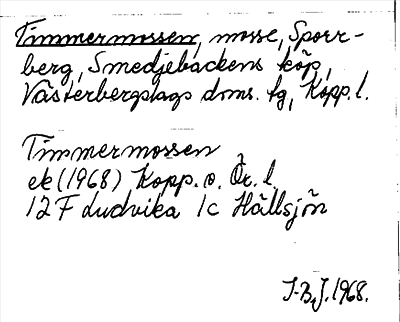 Timmermossen, mosse, Sporr-
berg, Smedjebackens köp,
Västerbergslags doms. tg, Kopp. l.
Timmermossen
ek (1968) Kopp. o. Ör. l.
12 F Ludvika 1c Hällsjön
I-B.J. 1968.